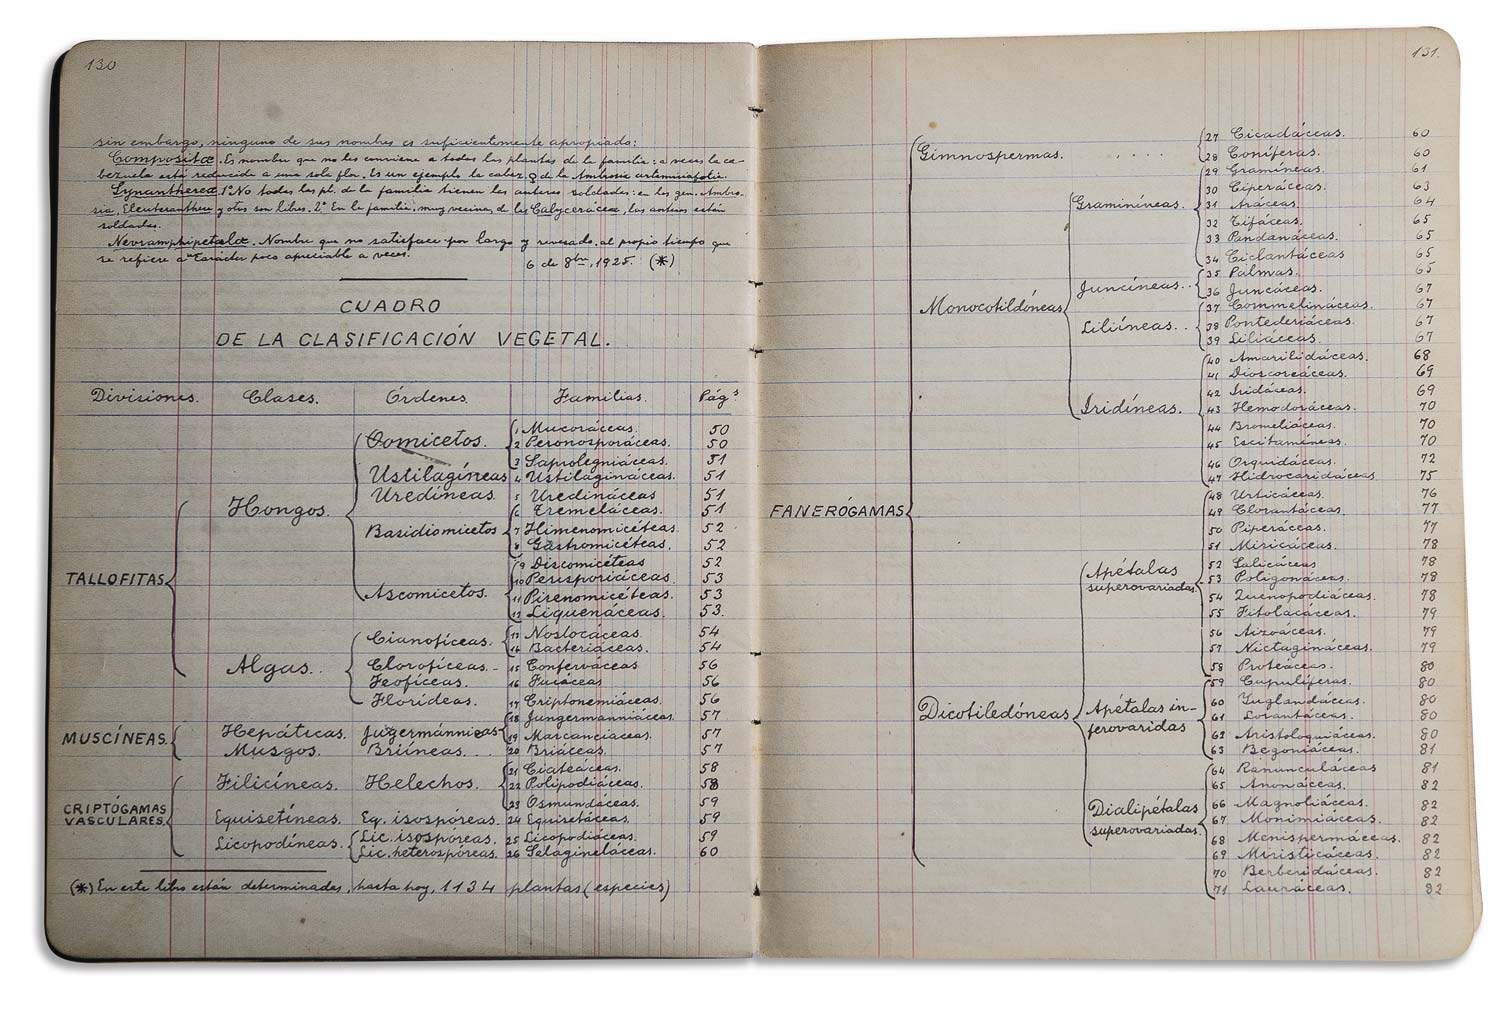 130
sin embargo, ninguno de sus nombres es suficientemente apropiado:
Compositæ. Es nombre que no les conviene a todas las plantas de la familia: a veces la ca-
bezuela está reducida a una sola flor. Es un ejemplo la cabez. ♀ de la Ambrosia artemisiæfolia.
Synanthereæ. 1º No todas las pl. de la familia tienen las anteras soldadas: en los gen. Ambro-
sia, Eleuteranthera y otros son libres. 2º En la familia, muy vecina, de las Calyceráceæ, las anteras están
soldadas.
Nevramphipetalæ. Nombre que no satisface por largo y revesado, al propio tiempo que
se refiere a un carácter poco apreciable a veces. 6 de 8bre, 1925. (*)
CUADRO
DE LA CLASIFICACIÓN VEGETAL.
Divisiones. Clases. Órdenes. Familias. Págs
TALLOFITAS
Hongos.
Oomicetos. 1 Mucoráceas. 50
2 Peronosporáceas. 50
3 Saprolegniáceas. 51
Ustilagíneas 4 Ustilagináceas. 51
Uredíneas. 5 Uredináceas 51
Basidiomicetos 6 Tremeláceas. 51
7 Himenomicéteas. 52
8 Gastromicéteas. 52
Ascomicetos. 9 Discomicéteas 52
10 Perisporiáceas. 53
11 Pirenomicéteas. 53
12 Liquenáceas. 53.
Algas.
Cianofíceas. 13 Nostocáceas. 54
14 Bacteriáceas. 54
Clorofíceas. 15 Conferváceas 56
Feofíceas. 16 Fucáceas 56
Florídeas. 17 Criptonemiáceas. 56
MUSCÍNEAS.
Hepáticas. Jugermánnicas 18 Jungermanniáceas. 57
19 Marcanciaceas. 57
Musgos. Briíneas. 20 Briáceas. 57
CRIPTÓGAMAS
VASCULARES.
Filicíneas. Helechos. 21 Ciateáceas. 58
22 Polipodiáceas. 58
23 Osmundáceas. 59
Equisetíneas. Eq. isospóreas. 24 Equisetáceas. 59
Licopodíneas. Lic. isospóreas. 25 Licopodiáceas. 59
Lic. heterospóreas. 26 Selagineláceas. 60
(*) En este libro están determinadas, hasta hoy, 1134 plantas (especies)
131.
FANERÓGAMAS
Gimnospermas. . . . . 27 Cicadáceas. 60
28 Coníferas. 60
Monocotildóneas
Graminíneas. 29 Gramíneas. 61
30 Ciperáceas. 63
31 Aráceas. 64
32 Tifáceas. 65
33 Pandanáceas. 65
34 Ciclantáceas 65
Juncíneas. . 35 Palmas. 65
36 Juncáceas. 67
Liliíneas. . 37 Commelináceas. 67
38 Pontederiáceas. 67
39 Liliáceas. 67
Iridíneas. 40 Amarilidáceas. 68
41 Dioscoreáceas. 69
42 Iridáceas. 69
43 Hemodoráceas. 70
44 Bromeliáceas. 70
45 Escitamíneas. 70
46 Orquidáceas. 72
47 Hidrocaridáceas. 75
Dicotiledóneas
Apétalas
superovariadas. 48 Urticáceas. 76
49 Clorantáceas. 77
50 Piperáceas. 77
51 Miricáceas. 78
52 Salicáceas 78
53 Poligonáceas. 78
54 Quenopodiáceas. 78
55 Fitolacáceas. 79
56 Aizoáceas. 79
57 Nictagináceas. 79
58 Proteáceas. 80
Apétalas in-
ferovaridas. 59 Cupulíferas. 80
60 Juglandáceas. 80
61 Lorantáceas. 80
62 Aristoloquiáceas. 80
63 Begoniáceas. 81
Dialipétalas
superovariadas. 64 Ranunculáceas 81
65 Anonáceas. 82
66 Magnoliáceas. 82
67 Monimiáceas. 82
68 Menispermáceas. 82
69 Miristicáceas. 82
70 Berberidáceas. 82
71 Lauráceas. 82